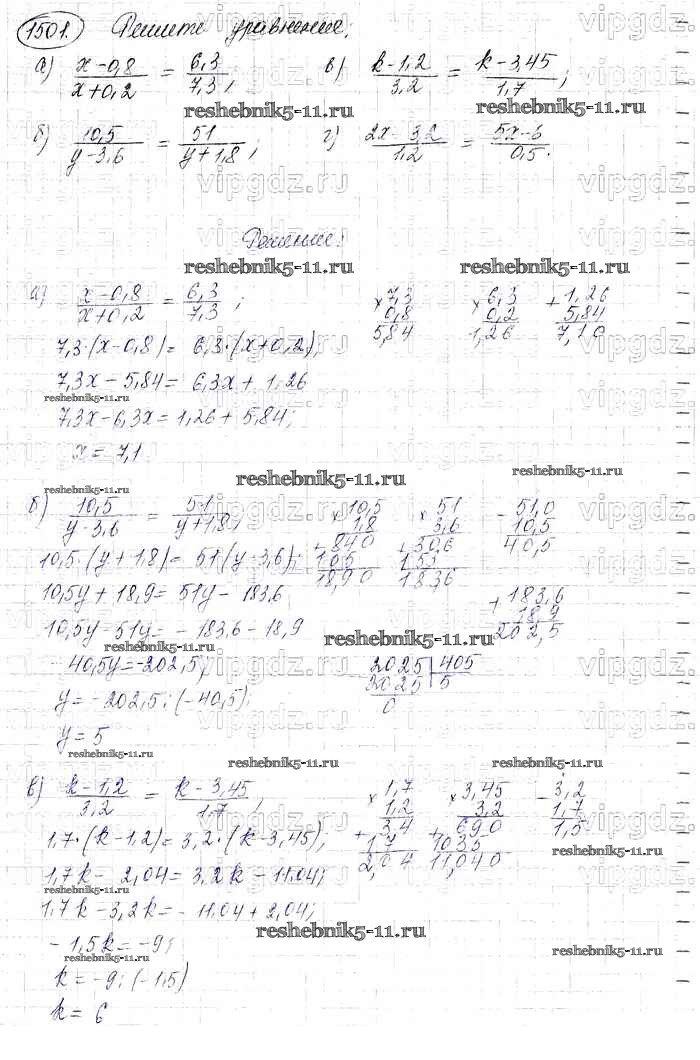 1501. Решите уравнения;
а) x-0,8 / x+0,2 = 6,3 / 7,3; в) k-1,2 / 3,2 = k-3,45 / 1,7;
reshebnik5-11.ru reshebnik5-11.ru
б) 10,5 / y-3,6 = 51 / y+1,8; г) 2x- / 1,2 = 5x-6 / 0,5.
vipgdz.ru vipgdz.ru vipgdz.
Решение:
reshebnik5-11.ru reshebnik5-11.ru
а) x-0,8 / x+0,2 = 6,3 / 7,3;
7,3·(x-0,8)= 6,3·(x+0,2);
7,3x- 5,84= 6,3x+ 1,26
reshebnik5-11.ru
7,3x-6,3x=1,26+5,84;
x= 7,1
× 7,3
0,8
5,84
× 6,3
0,2
1,26
+ 1,26
5,84
7,10
reshebnik5-11.ru reshebnik5-11.ru
б) 10,5 / y-3,6 = 51 / y+1,8;
10,5·(y+1,8)= 51(y-3,6);
10,5y+ 18,9= 51y- 183,6
10,5y-51y=- 183,6-18,9
-40,5y=-202,5;
y= -202,5:(-40,5);
y= 5
× 10,5
1,8
+ 840
105
18,90
× 51
3,6
+ 30,6
153
183,6
- 51,0
10,5
40,5
+ 183,6
18,9
202,5
reshebnik5-11.ru
2025 | 405
2025 | 5
0
reshebnik5-11.ru reshebnik5-11.ru reshebnik5-11.ru
в) k-1,2 / 3,2 = k-3,45 / 1,7;
1,7·(k-1,2)= 3,2·(k-3,45);
1,7k- 2,04= 3,2k-11,04;
reshebnik5-11.ru
1,7k-3,2k=- 11,04+2,04;
-1,5k=-9;
k= -9:(-1,5)
k= 6
× 1,7
1,2
+ 3,4
17
2,04
× 3,45
3,2
+ 690
1035
11,040
- 3,2
1,7
1,5
reshebnik5-11.ru
reshebnik5-11.ru
reshebnik5-11.ru reshebnik5-11.ru